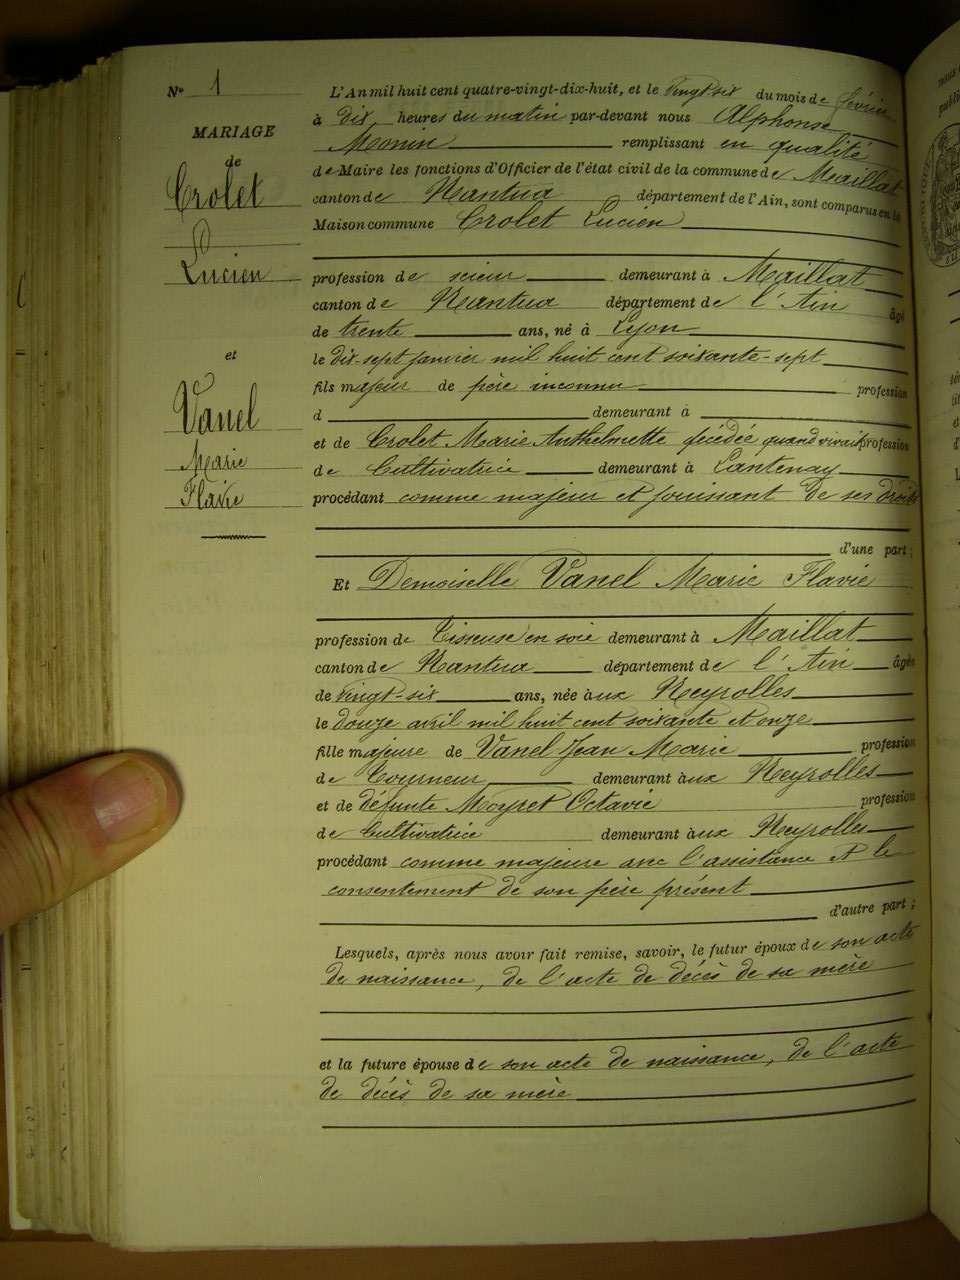 N° 1
MARIAGE
de
Crolet
Lucien
et
Vanel
Marie
Flavie
L'An mil huit cent quatre-vingt-dix-huit, et le vingt-six du mois de février
à dix heures du matin par-devant nous Alphonse
Monin remplissant en qualité
de Maire les fonctions d'Officier de l'état civil de la commune de Maillat
canton de Nantua département de l'Ain, sont comparus en la
Maison commune Crolet Lucien
profession de scieur demeurant à Maillat
canton de Nantua département de l'Ain âgé
de trente ans, né à Lyon
le dix-sept janvier mil huit cent soixante-sept
fils majeur de père inconnu profession
d demeurant à
et de Crolet Marie Anthelmette décédée quand vivait profession
de Cultivatrice demeurant à Lantenay
procédant comme majeur et jouissant de ses droits
d'une part ;
Et Demoiselle Vanel Marie Flavie
profession de Tisseuse en soie demeurant à Maillat
canton de Nantua département de l'Ain âgée
de vingt-six ans, née aux Neyrolles
le douze avril mil huit cent soixante et onze
fille majeure de Vanel Jean Marie profession
de Tourneur demeurant aux Neyrolles
et de défunte Moyret Octavie profession
de Cultivatrice demeurant aux Neyrolles
procédant comme majeure avec l'assistance et le
consentement de son père présent
d'autre part ;
Lesquels, après nous avoir fait remise, savoir, le futur époux de son acte
de naissance, de l'acte de décès de sa mère
et la future épouse de son acte de naissance, de l'acte
de décès de sa mère